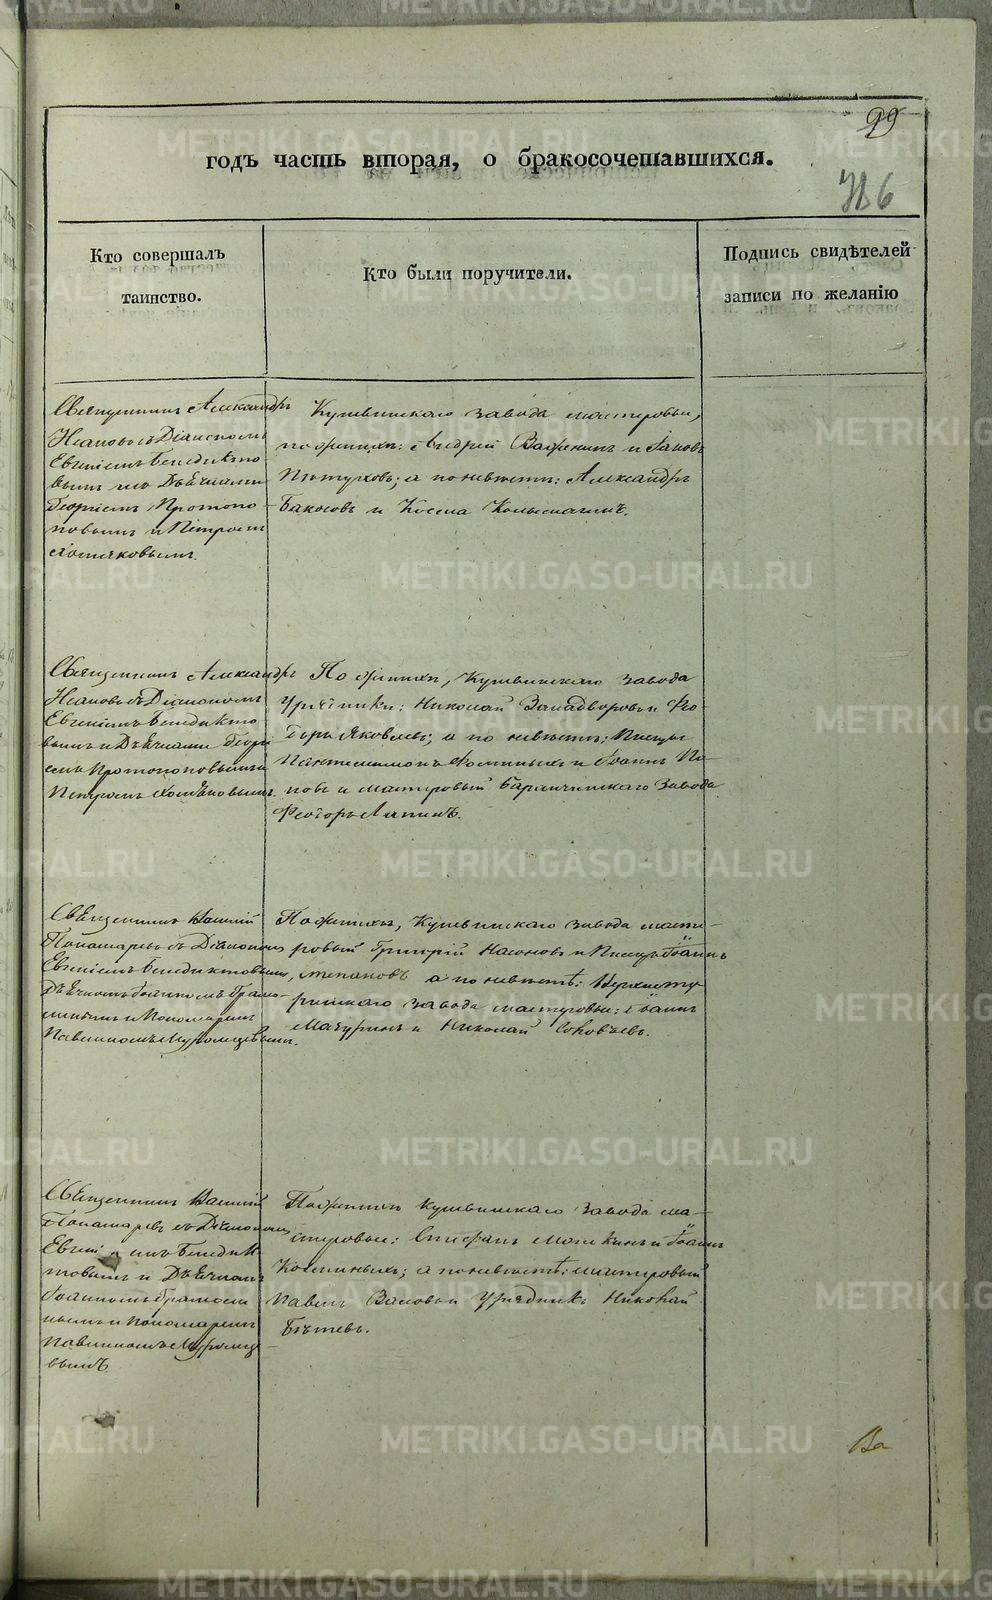 99
годъ часть вторая, о бракосочетавшихся.
Кто совершалъ
таинство.
Кто были поручители.
Подпись свидѣтелей
записи по желанію
Священникъ Александръ
Исаковъ съ Діакономъ
Евгеніемъ Бенедикто
вымъ и Дьячками
Георгіемъ Протопо
повымъ и Петромъ
Хомяковымъ.
Кушвинскаго завода мастеровые,
по женихѣ: Андрей Важенинъ и Іаковъ
Пѣтуховъ; а по невѣстѣ: Александръ
Бакосовъ и Косма Колмагинъ.
Священникъ Александръ
Исаковъ съ Діакономъ
Евгеніемъ Бенедикто
вымъ и Дьячками Георгі
емъ Протопоповымъ и
Петромъ Хомяковымъ.
По женихѣ, Кушвинскаго завода
Урядники: Николай Западворовъ и Ѳео
доръ Яковлевъ; а по невѣстѣ: Писцы
Пантелеимонъ Ѳоминыхъ и Іоаннъ По-
повъ и мастеровый Баранчинскаго завода
Ѳеодоръ Лапинъ.
Священникъ Василій
Пономаревъ съ Діакономъ
Евгеніемъ Бенедиктовымъ,
Дьячкомъ Іоанномъ Грамо-
линымъ и Пономаремъ
Павлиномъ Муромцевымъ.
По женихѣ, Кушвинскаго завода масте-
ровый Григорій Насоновъ и Писецъ Іоаннъ
Степановъ а по невѣстѣ: Верхнету
ринскаго завода мастеровые: Іоаннъ
Мачуринъ и Николай Соловьевъ.
Священникъ Василій
Пономаревъ съ Діакономъ
Евгеніемъ Бенедик
товымъ и Дьячкомъ
Іоанномъ Грамоли
нымъ и Пономаремъ
Павлиномъ Муромце
вымъ.
По женихѣ Кушвинскаго завода ма-
стеровые: Стефанъ Мошкинъ и Іоаннъ
Косминыхъ; а по невѣстѣ: мастеровый
Павелъ Валовъ и Урядникъ Николай
Бѣтевъ.
Ва
METRIKI.GASO-URAL.RU